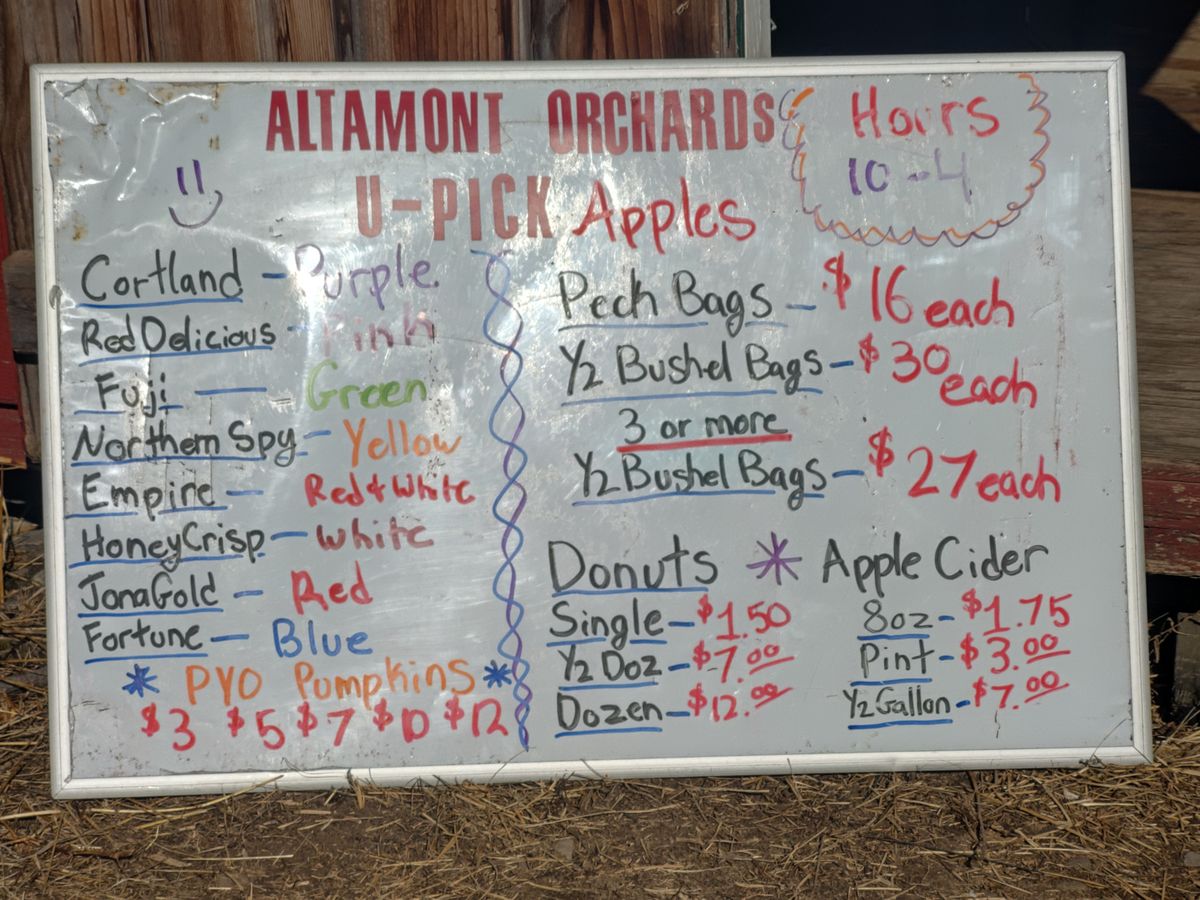 ALTAMONT ORCHARDS
U-PICK Apples
Hours
10-4
Cortland - Purple
Red Delicious - Pink
Fuji — Green
Northern Spy - Yellow
Empire - Red + White
HoneyCrisp - White
JonaGold - Red
Fortune - Blue
* PYO Pumpkins *
$3 $5 $7 $10 $12
Peck Bags - $16 each
1/2 Bushel Bags - $30 each
3 or more
1/2 Bushel Bags - $27 each
Donuts * Apple Cider
Single - $1.50
1/2 Doz - $7.00
Dozen - $12.00
8oz - $1.75
Pint - $3.00
1/2 Gallon - $7.00